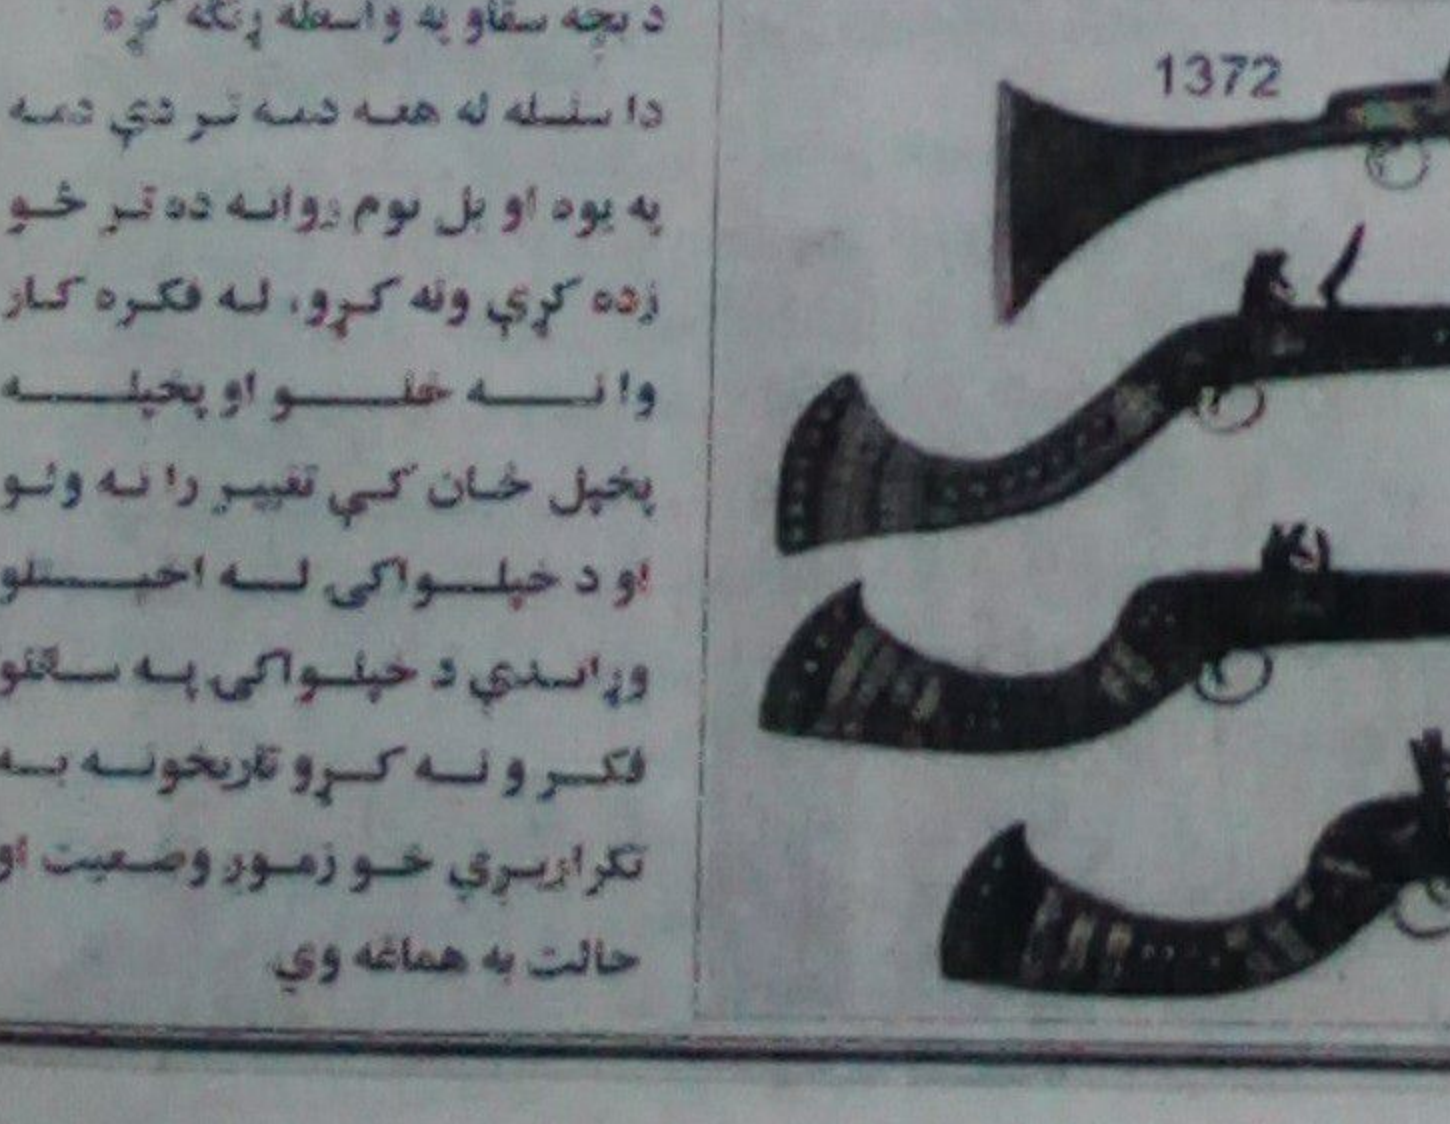 د بچه سقاو په واسطه ړنګه کړه
دا سلسله له هغه دمه تر دې دمه
په یوه او بل نوم روانه ده تر څو
زده کړې ونه کړو، له فکره کار
وا نه خلو او پخپله
پخپل ځان کې تغییر را نه ولو
او د خپلواکۍ له اخستلو
وړاندې د خپلواکۍ په ساتلو
فکر و نه کړو تاریخونه به
تکراریږي خو زموږ وضعیت او
حالت به هماغه وي
1372